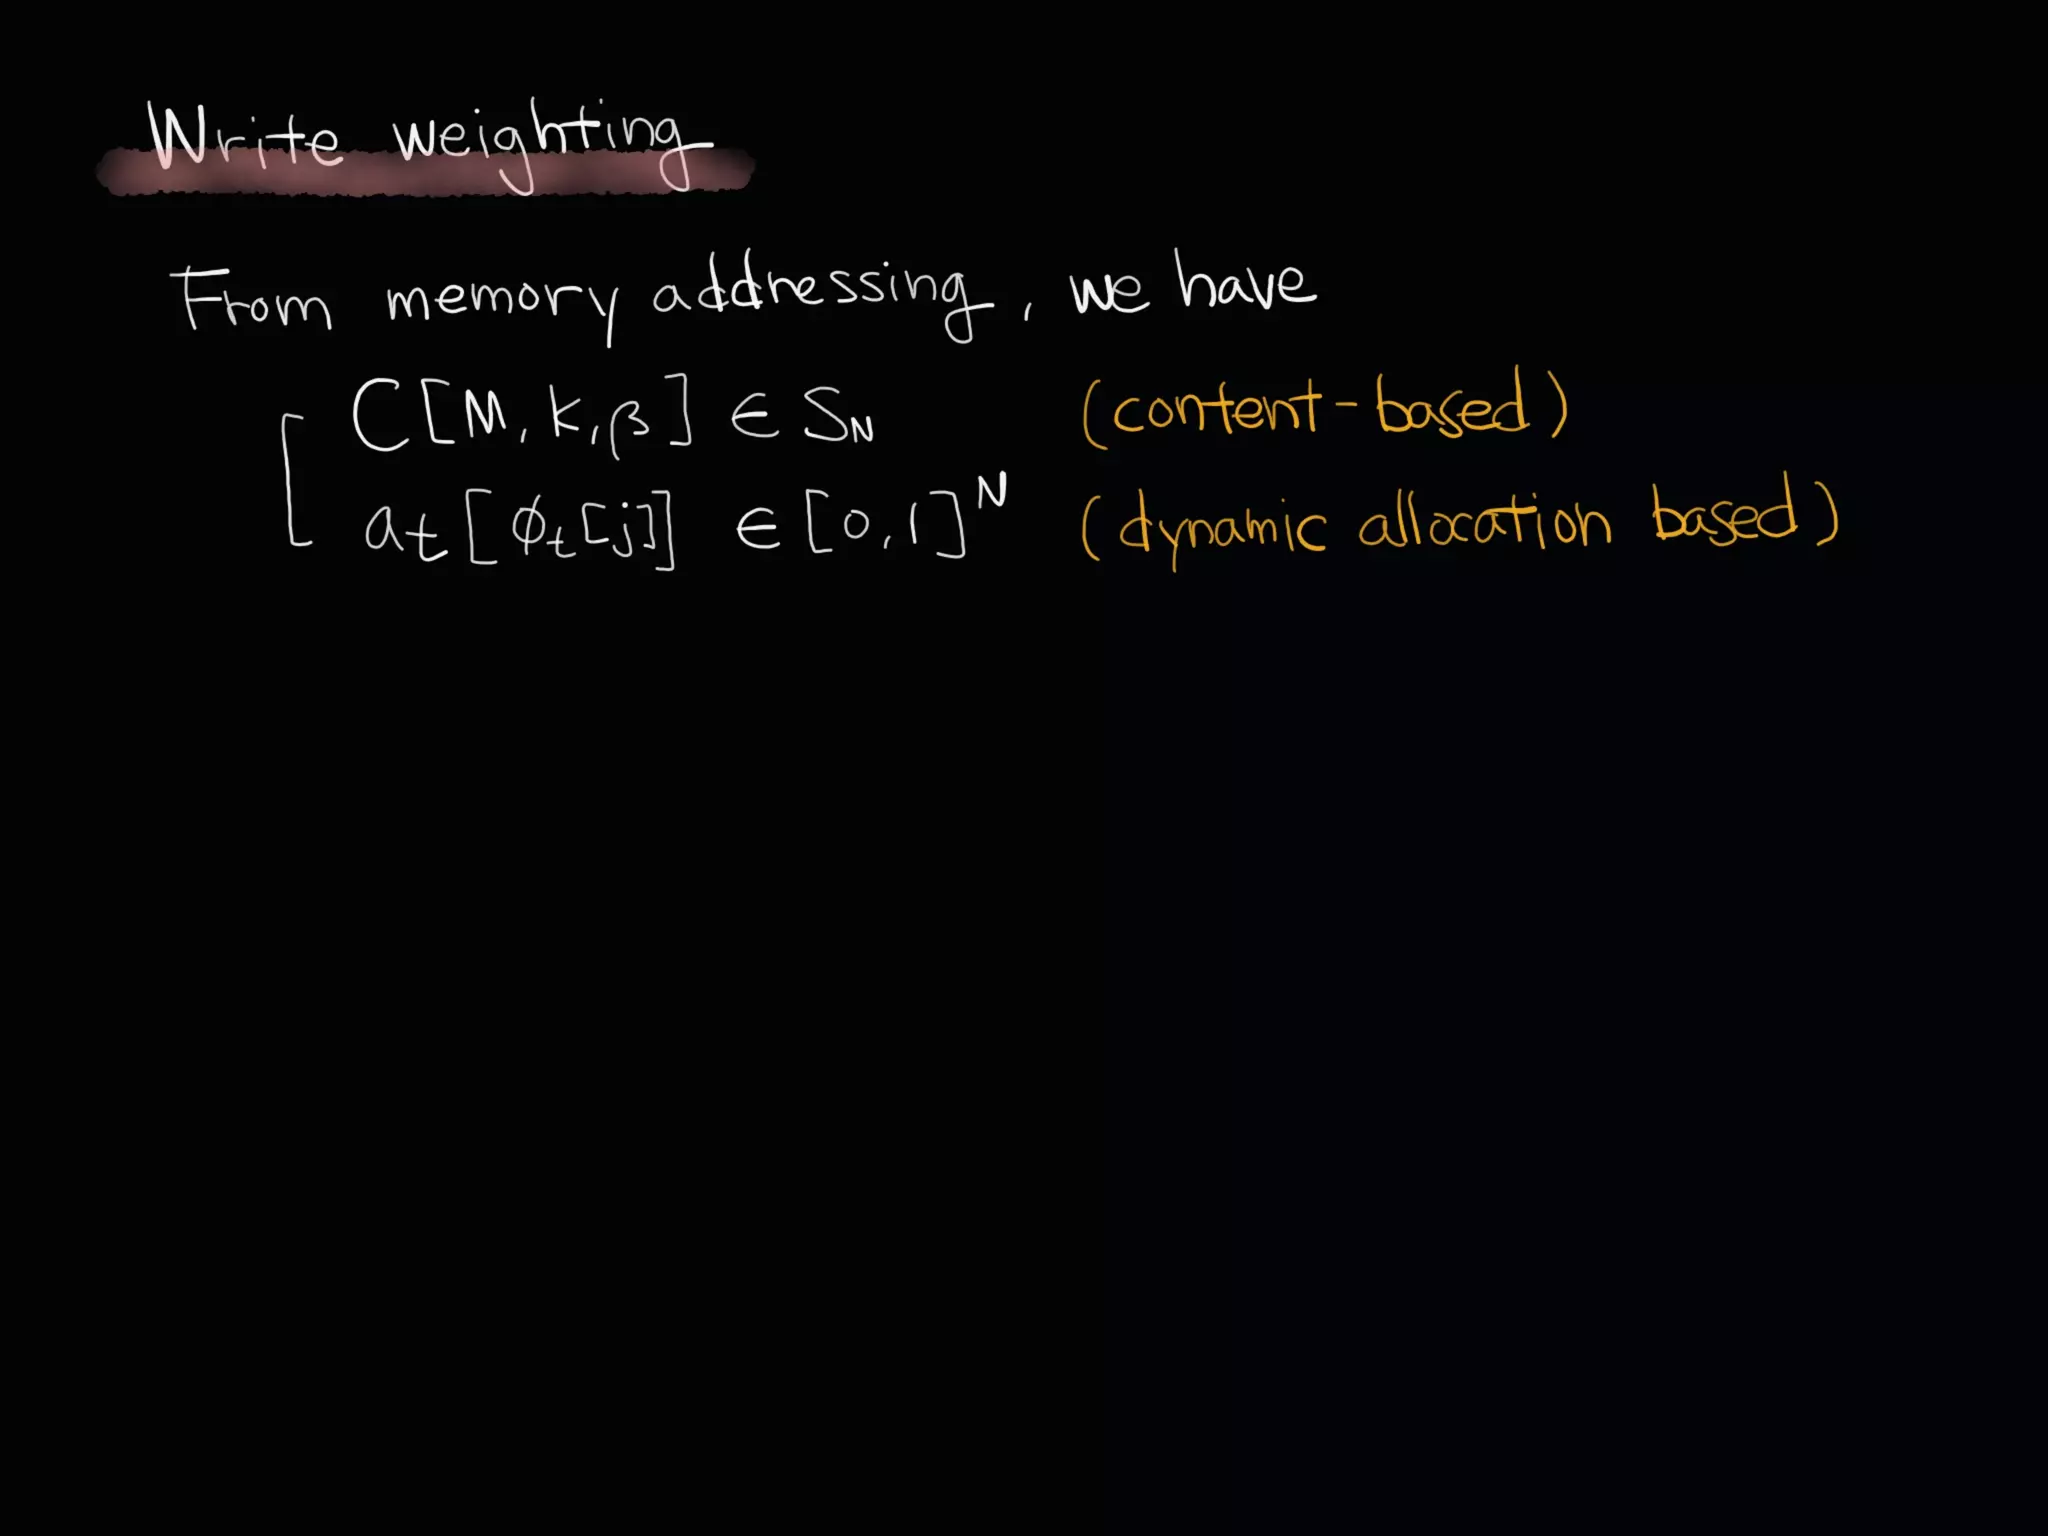 Write weighting
From memory addressing, we have
C[M, k, β] ∈ S_N (content-based)
a_t[ϕ_t[j]] ∈ [0,1]^N (dynamic allocation based)